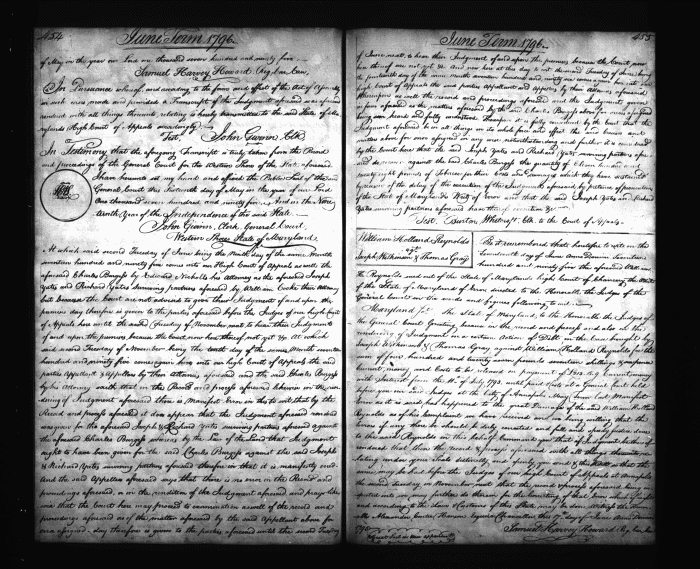 454
June Term 1796
of May in the year our Lord one thousand seven hundred and ninety five
Samuel Harvey Howard Reg. Cur. Can.
In Pursuance whereof, and according to the form and effect of the Act of Assembly
in such case made and provided a Transcript of the Judgment aforesaid
and with all things thereunto relating is hereby transmitted to the said State of Ma
ryland's High Court of Appeals accordingly
Test. John Gwinn Clk
In Testimony that the aforegoing Transcript is truly taken from the Record
and proceedings of the General Court for the Western Shore of the State aforesaid
I have hereunto set my hand and affixed the Public Seal of the said
General Court this thirteenth day of May in the year of our Lord
One thousand seven hundred and ninety five And in the Nine
teenth Year of the Independence of the said State
John Gwinn Clerk General Court
Western Shore State of Maryland
At which said second Tuesday of June being the Ninth day of the same Month
seventeen hundred and ninety five comes into our High Court of Appeals as well the
aforesaid Charles Burgess by Edward Nicholls his Attorney as the aforesaid Joseph
Yates and Richard Yates surviving partners aforesaid by William Cooke their Attorney
but because the Court are not advised to give their Judgment of and upon the
premises day therefore is given to the parties aforesaid before the Judges of our high Court
of Appeals here until the second Tuesday of November next to hear their Judgment
of and upon the premises because the Court now here thereof not yet &c. At which
said second Tuesday of November being the tenth day of the same Month seventeen
hundred and ninety five comes again here into our high Court of Appeals the said
parties Appellant & Appellees by their Attornies aforesaid and the said Charles Burgess
by his Attorney saith that in the Record and process aforesaid likewise in the ren
dering of Judgment aforesaid there is Manifest Error in this to wit that by the
Record and process aforesaid it doth appear that the Judgment aforesaid rendered
was given for the aforesaid Joseph & Richard Yates surviving partners aforesaid against
the aforesaid Charles Burgess whereas by the Law of the Land that Judgment
ought to have been given for the said Charles Burgess against the said Joseph
& Richard Yates surviving partners aforesaid therefore in that it is manifestly erred
And the said Appellees aforesaid says that there is no error in the Record and
proceedings aforesaid, or in the rendition of the Judgment aforesaid and prays likewise
that the Court here may proceed to examination as well of the record and
proceedings aforesaid as of the matter aforesaid by the said Appellant above for
error assigned day therefore is given to the parties aforesaid until the second Tuesday
455
June Term 1796
of June next, to hear their Judgment of and upon the premises because the Court now
here thereof not yet &c. And now here at this day to wit the second Tuesday of June being
the fourteenth day of the same month seventeen hundred and ninety six come again into the
high Court of Appeals the said parties Appellant and Appellees by their Attornies aforesaid
Whereupon as well the record and proceedings aforesaid and the Judgment given
in form aforesaid as the matters aforesaid by the said Charles Burgess above for error assigned
being seen heard and fully understood Therefore it is fully considered by the Court that the
Judgment aforesaid be in all things in its whole force and effect the said causes and
matters above for error assigned in any wise notwithstanding and further it is considered
by the Court here that the said Joseph Yates and Richard Yates surviving partners afore
said do recover against the said Charles Burgess the quantity of
hundred and eight pounds of Tobacco for their Costs and charges which they have sustained
by reason of the delay of the execution of the Judgment aforesaid, by pretence of prosecution
of the State of Maryland's Writ of Error and that the said Joseph Yates and Richard
Yates surviving partners aforesaid have thereof execution &c.
Test. Burton Whetcroft Clk to the Court of Appeals
William Holland Reynolds
agst.
Joseph Wilkinson & Thomas Gray
Be it remembered that heretofore to wit on the
twentieth day of June Anno Domini Seventeen
hundred and ninety five the aforesaid William
Holland Reynolds sued out of the State of Maryland's High Court of Chancery the Writ
of the State of Maryland of Error directed to the Honorable the Judges of the
General Court in the words and figures following to wit
Maryland Sc. The State of Maryland, to the Honorable the Judges of
the General Court Greeting because in the record and process and also in the
rendering of Judgment in a certain Action of Debt in the Court brought by
Joseph Wilkinson & Thomas Gray against William Holland Reynolds for the
sum of four hundred and twenty seven pounds shillings & sixpence
current money and Costs to be released on payment of
with Interest from the 14th of July 1792, until paid Costs at a General Court held
before you the said Judges at the City of Annapolis May Term last Manifest
Error as it is said hath happened to the great Damage of the said William Holland
Reynolds as of his Complaint we have received We being willing that the
Error if any there be should be duly corrected and full and speedy Justice done
to the said Reynolds in this behalf Command you that if Judgment be thereof
rendered that then the Record & process aforesaid with all things thereunto
relating under your seals distinctly and openly you send & this Writ so that the
same may be had before the Judges of our high Court of Appeals at Annapolis
the second Tuesday in November next that the record & process aforesaid being in
spected into we may further do therein for the correcting of that Error what of right
and according to the Laws & Customs of this State may be done Witness the Honor
able Alexander Contee Hanson Esquire Chancellor this day of June Anno Domini
1795
Samuel Harvey Howard Reg. Cur. Can.